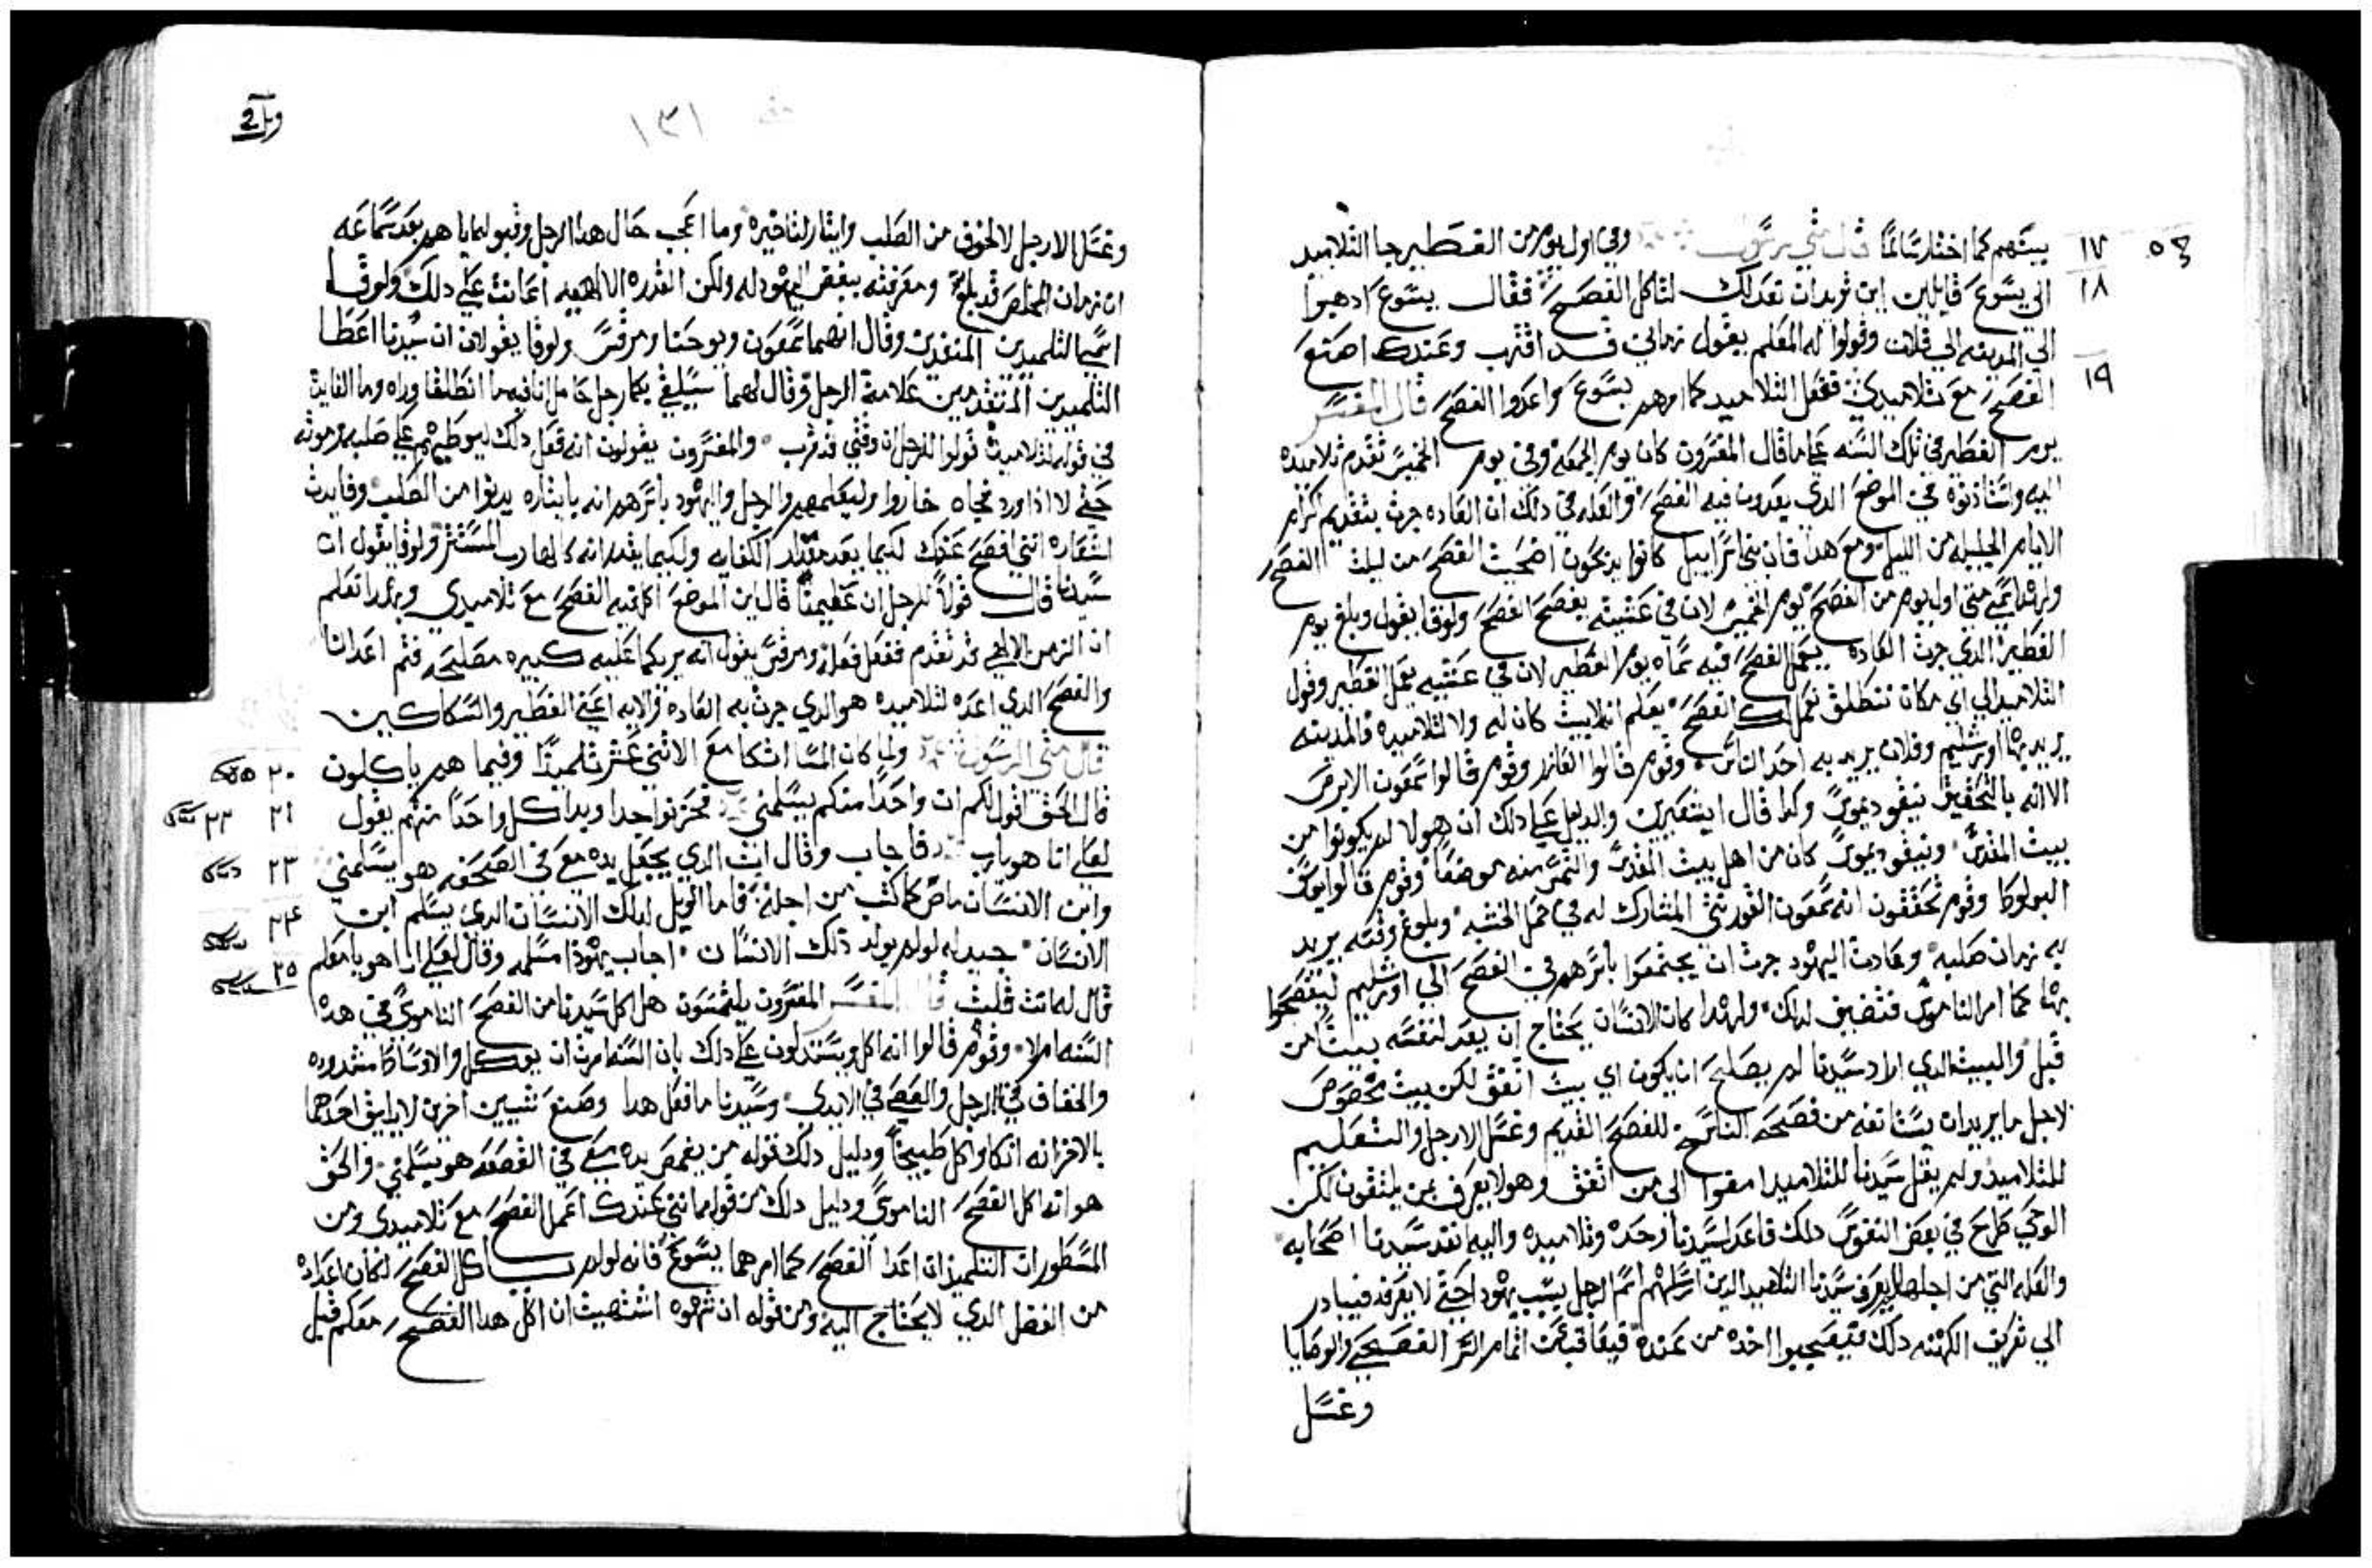 بيتهم كما اختار سالما قال متي الرسول وفي اول يوم من الفطير جا التلاميد
الي يسوع قايلين اين تريد ان نعد لك لتاكل الفصح فقال يسوع ادهبوا
الي المدينه الي فلان وقولوا له المعلم يقول زماني قد اقترب وعندك اصنع
الفصح مع تلاميدي ففعل التلاميد كما امرهم يسوع واعدوا الفصح قال المفسر
يوم الفطير في تلك السنه علي ما قال المفسرون كان يوم الجمعه وفي يوم الخميس تقدم تلاميده
اليه واستادنوه في الموضع الدي يعدون فيه الفصح والعله في دلك ان العاده جرت بتقديم اكرام
الايام الجليله من الليل ومع هدا فان بني اسراييل كانوا يدبحون اضحيت الفصح من ليلت الفصح
ولهدا يسمي متي اول يوم من الفصح يوم الخميس لان في عشيته يفصح الفصح ولوقا يقول وبلغ يوم
الفطير الدي جرت العاده يعمل الفصح فيه سماه يوم الفطير لان في عشيته يعمل الفطير وقول
التلاميد الي اي مكان ننطلق نعمل لك الفصح يعلم انه لا بيت كان له ولا لتلاميده والمدينه
يريد بها اورشليم وفلان يريد به احد الناس وقوم قالوا العازر وقوم قالوا سمعون الابرص
الا انه بالتحقيق نيقوديموس وكدا قال والدليل علي دلك ان هولا لم يكونوا من
بيت المقدس ونيقوديموس كان من اهل بيت المقدس والتمس منه موضعا وقوم قالوا يوسف
البولوطا وقوم يحققون انه سمعون القورنني المشارك له في حمل الخشبه وبلوغ وقته يريد
به زمان صلبه وعادت اليهود جرت ان يجتمعوا باسرهم في الفصح الي اورشليم ليفصحوا
بها كما امر الناموس فتضيق لدلك ولهدا كان الانسان يحتاج ان يعد لنفسه بيتا من
قبل والبيت الدي اراد سيدنا لم يصلح ان يكون اي بيت اتفق لكن بيت مخصوص
لاجل ما يريد ان يستانفه من فصحه الناسخ للفصح القديم وغسل الارجل والتعليم
للتلاميد ولم يقل سيدنا للتلاميد امضوا الي من اتفق وهو لا يعرف بمن يلتقون لكن
الوحي طرح في بعض النفوس دلك فاعد لسيدنا وحده وتلاميده واليه انفد سيدنا اصحابه
والعله التي من اجلها لم يعرف سيدنا التلاميد الدين ارسلهم اسم الرجل بسبب يهودا حتي لا يعرفه فيبادر
الي تعريف الكهنه دلك فيجيوا اخده من عنده قبل اتمام السر الفصحي والوصايا
وغسل
١٧
١٨
١٩
١٣١
وغسل الارجل لا لخوف من الطلب وايتار لتاخيره وما اعجب حال هدا الرجل وقبوله اياهم بعد سماعه
ان زمان المخلص قد بلغ ومعرفته ببغض اليهود له ولكن القدره الالاهيه اعانت علي دلك ولوقا
اسمي التلميدين المنفدين وقال انهما سمعون ويوحنا ومرقس ولوقا يقولان ان سيدنا اعطا
التلميدين المتقدمين علامة الرجل وقال لهما سيلقيكما رجل حامل اناء فيه ما انطلقا وراه وما الفايده
في قوله لتلاميده قولوا للرجل ان وقتي قد قرب والمفسرون يقولون انه فعل دلك ليوطيهم علي صلبه وموته
حتي لا ادا ورد فجاه خاروا وليعلمهم والرجل واليهود باسرهم انه بايتاره يدنوا من الصلب وفايدت
اشعاره انني افصح عندك لكيما يعد مقدار الكفايه ولكيما يقدر انه كالهارب المستتر ولوقا يقول ان
سيدنا قال قولا للرجل ان عظيمنا قال اين الموضع اكل فيه الفصح مع تلاميدي وبهدا تعلم
ان الرمز الالاهي قد تقدم ففعل فعله ومرقس يقول انه يريكما عليه كبيره مصلحه فثم اعدا لنا
والفصح الدي اعده تلاميده هو الدي جرت به العاده والاته اعني الفطير والسكاكين
قال متي الرسول ولما كان المسا اتكا مع الاثني عشر تلميدا وفيما هم ياكلون
قال الحق اقول لكم ان واحدا منكم يسلمني فحزنوا جدا وبدا كل واحدا منهم يقول
لعلي انا هو يا رب فاجاب وقال ان الدي يجعل يده معي في الصحفه هو يسلمني
وابن الانسان ماض كما كتب من اجله فاما الويل لدلك الانسان الدي يسلم ابن
الانسان جيد له لو لم يولد دلك الانسان اجاب يهودا مسلمه وقال لعلي انا هو يا معلم
قال له انت قلت قال المفسر المفسرون يلتمسون هل اكل سيدنا من الفصح الناموسي في هده
السنه ام لا وقوم قالوا انه اكل ويستدلون علي دلك بان السنه امرت ان يوكل والاوساط مشدوده
والخفاف في الرجل والعصي في الايدي وسيدنا ما فعل هدا وصنع شيين اخرين لا يليق احدهما
بالاخر انه اتكا واكل طبيخا ودليل دلك قوله من يغمس يده معي في القصعه هو يسلمني والحق
هو انه اكل الفصح الناموسي ودليل دلك من قوله انني عندك اعمل الفصح مع تلاميدي ومن
المسطور ان التلميدان اعدا الفصح كما امرهما يسوع فانه لو لم ياكل الفصح لكان اعداده
من الفضل الدي لا يحتاج اليه ومن قوله ان شهوه اشتهيت ان اكل هدا الفصح معكم قبل
٢٠
٢١ ٢٢
٢٣
٢٤
٢٥